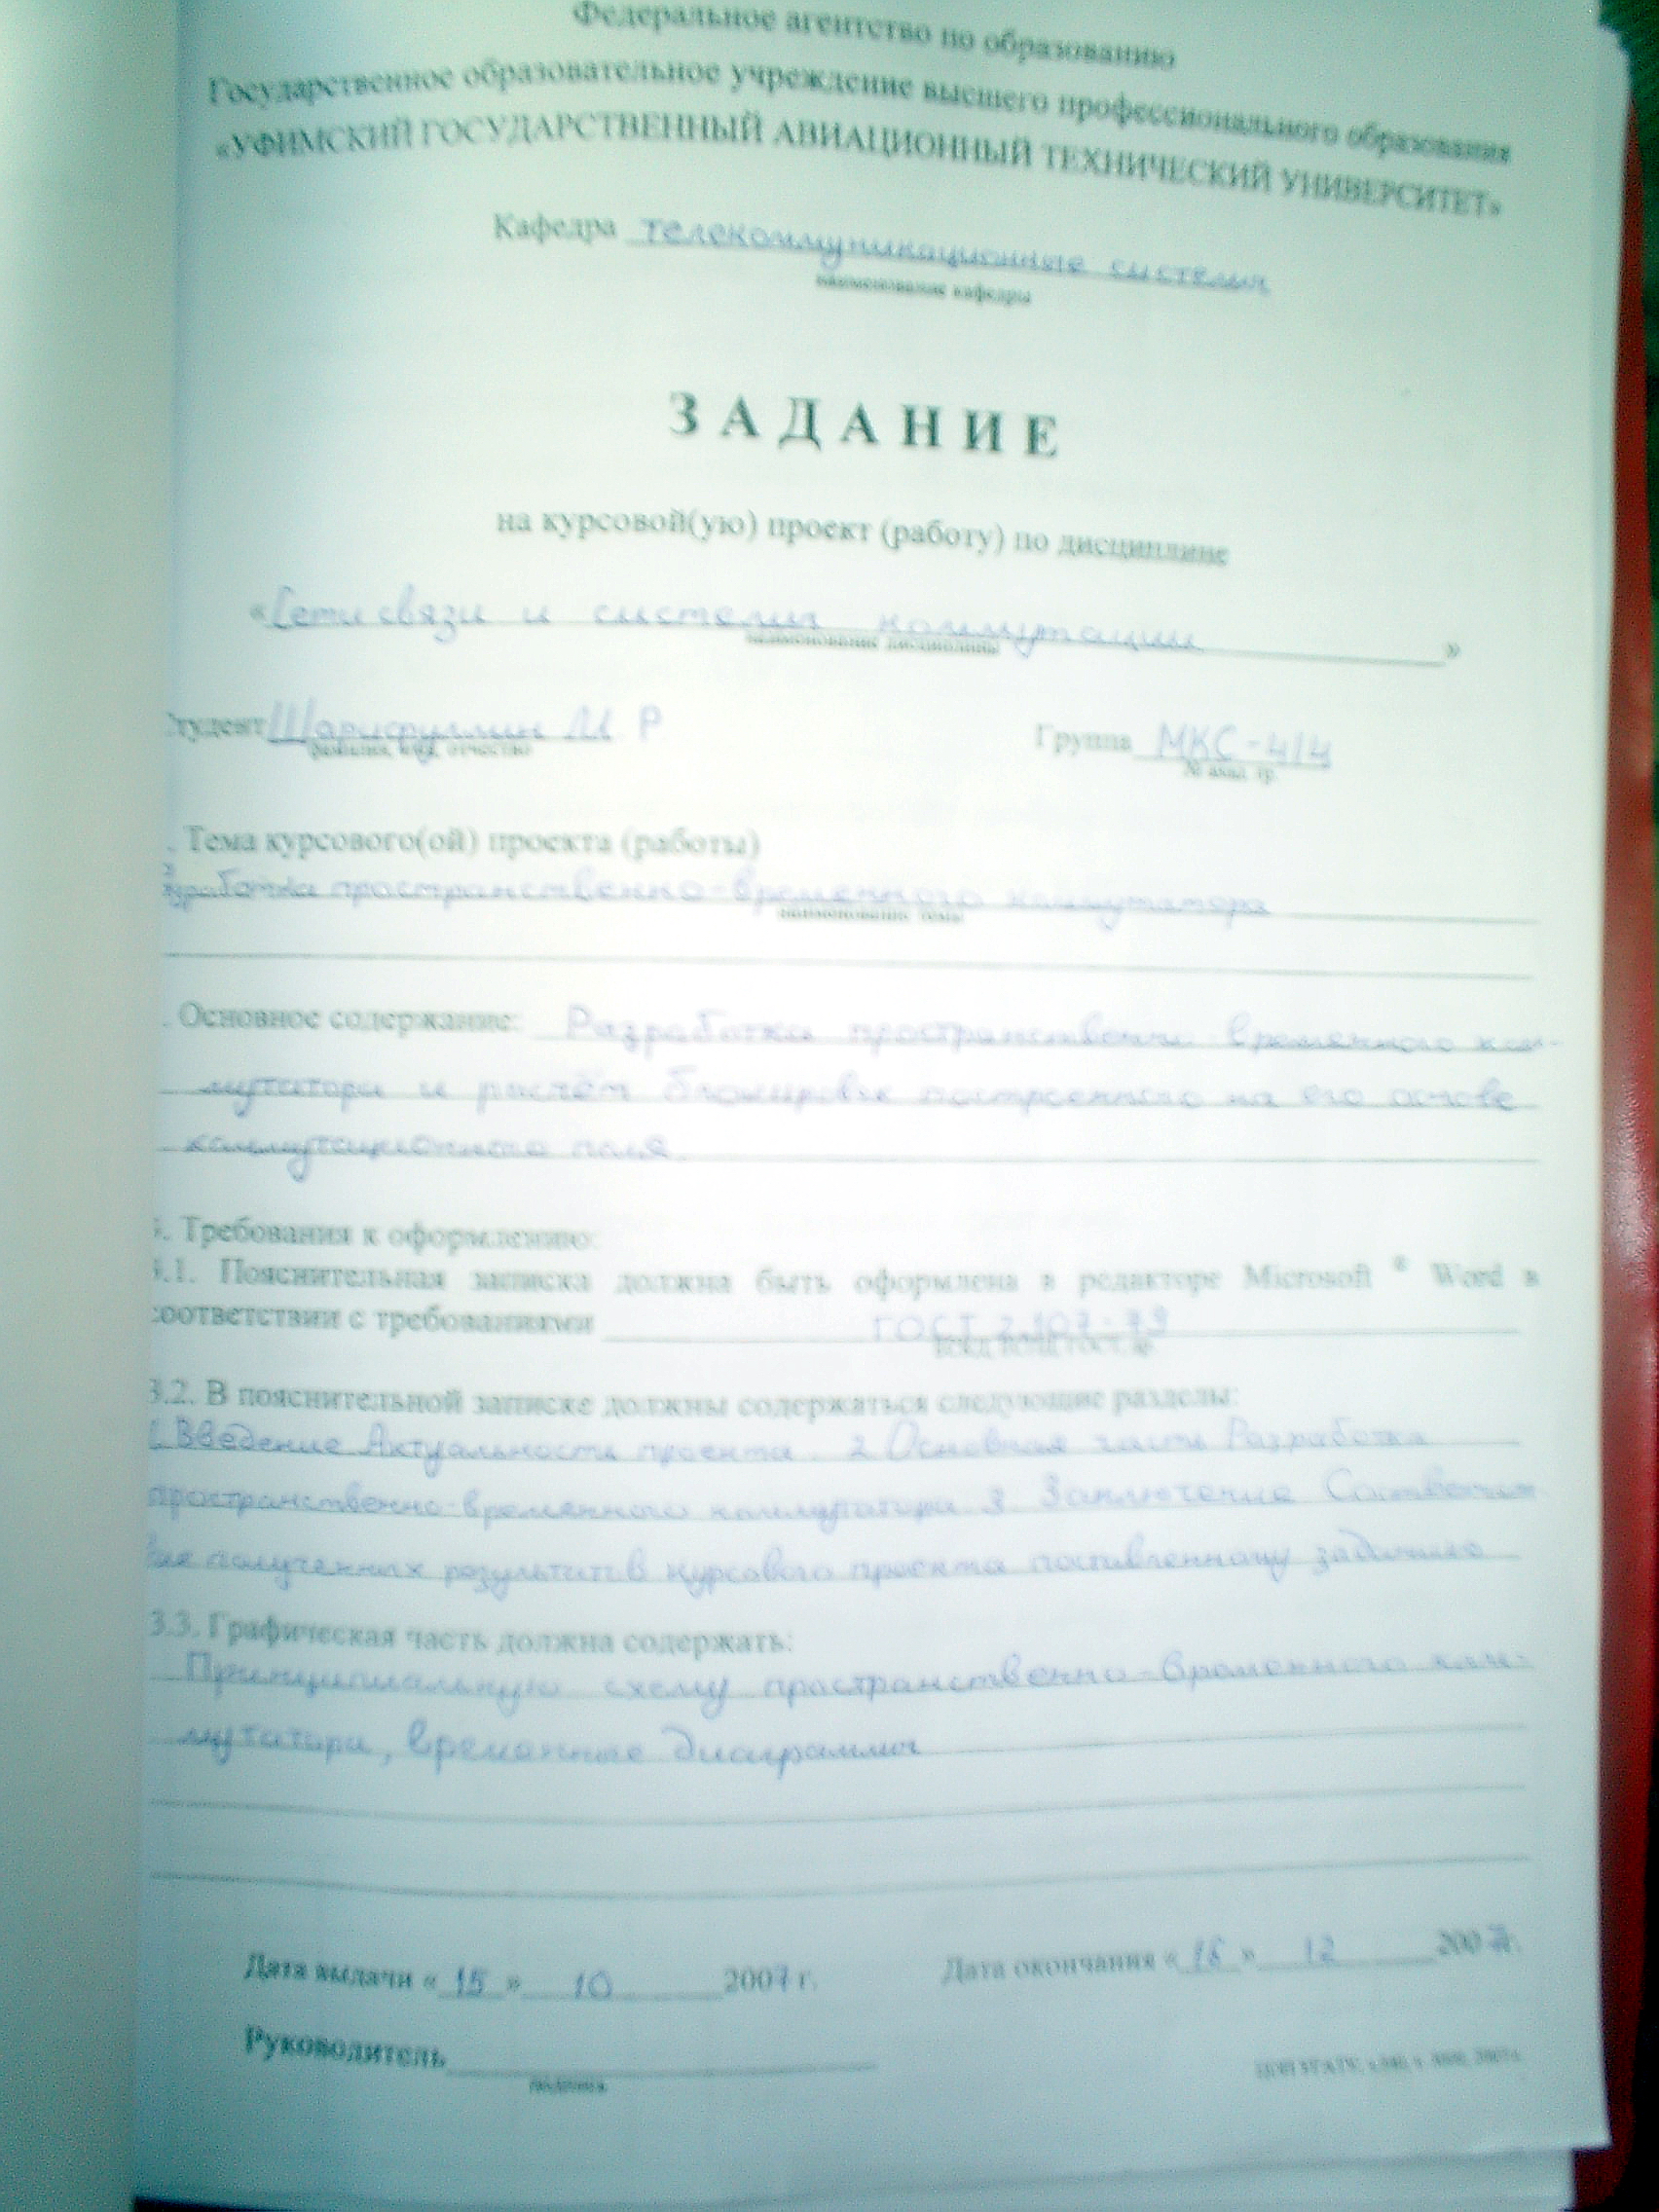 Федеральное агентство по образованию
Государственное образовательное учреждение высшего профессионального образования
«УФИМСКИЙ ГОСУДАРСТВЕННЫЙ АВИАЦИОННЫЙ ТЕХНИЧЕСКИЙ УНИВЕРСИТЕТ»
Кафедра телекоммуникационные системы
наименование кафедры
ЗАДАНИЕ
на курсовой(ую) проект (работу) по дисциплине
«Сети связи и системы коммутации»
наименование дисциплины
Студент Шарифуллин И Р Группа МКС-414
фамилия, имя, отчество № акад. гр.
. Тема курсового(ой) проекта (работы)
Разработка пространственно-временного коммутатора
наименование темы
. Основное содержание: Разработка пространственно временного ком-
мутатора и расчёт блокировок построенного на его основе
коммутационного поля.
3. Требования к оформлению:
3.1. Пояснительная записка должна быть оформлена в редакторе Microsoft ® Word в
соответствии с требованиями ГОСТ
3.2. В пояснительной записке должны содержаться следующие разделы:
1. Введение Актуальность проекта. 2 Основная часть Разработка
пространственно-временного коммутатора 3 Заключение Соответст
вие полученных результатов курсового проекта поставленному заданию
3.3. Графическая часть должна содержать:
Принципиальную схему пространственно-временного ком-
мутатора, временные диаграммы
Дата выдачи «15» 10 2007 г. Дата окончания «16» 12 2007 г.
Руководитель
подпись